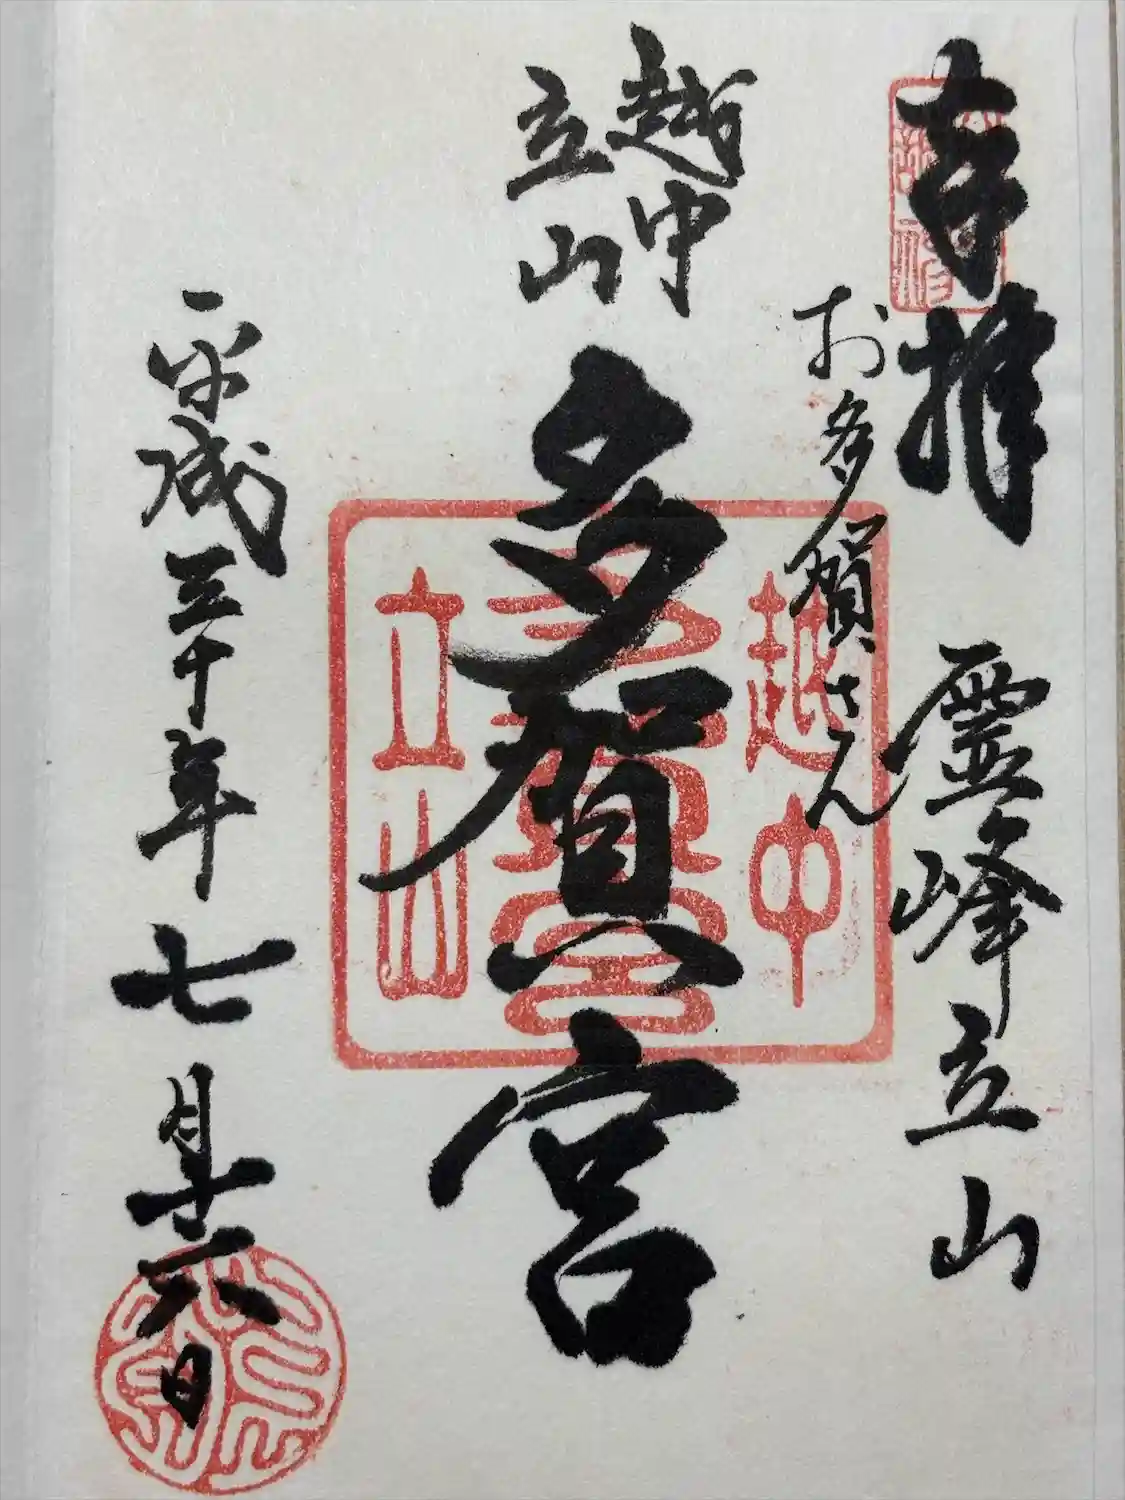 奉拝 霊峰立山
お多賀さん
越中
立山
多賀宮
平成三十年七月十六日
越中
多賀宮
立山